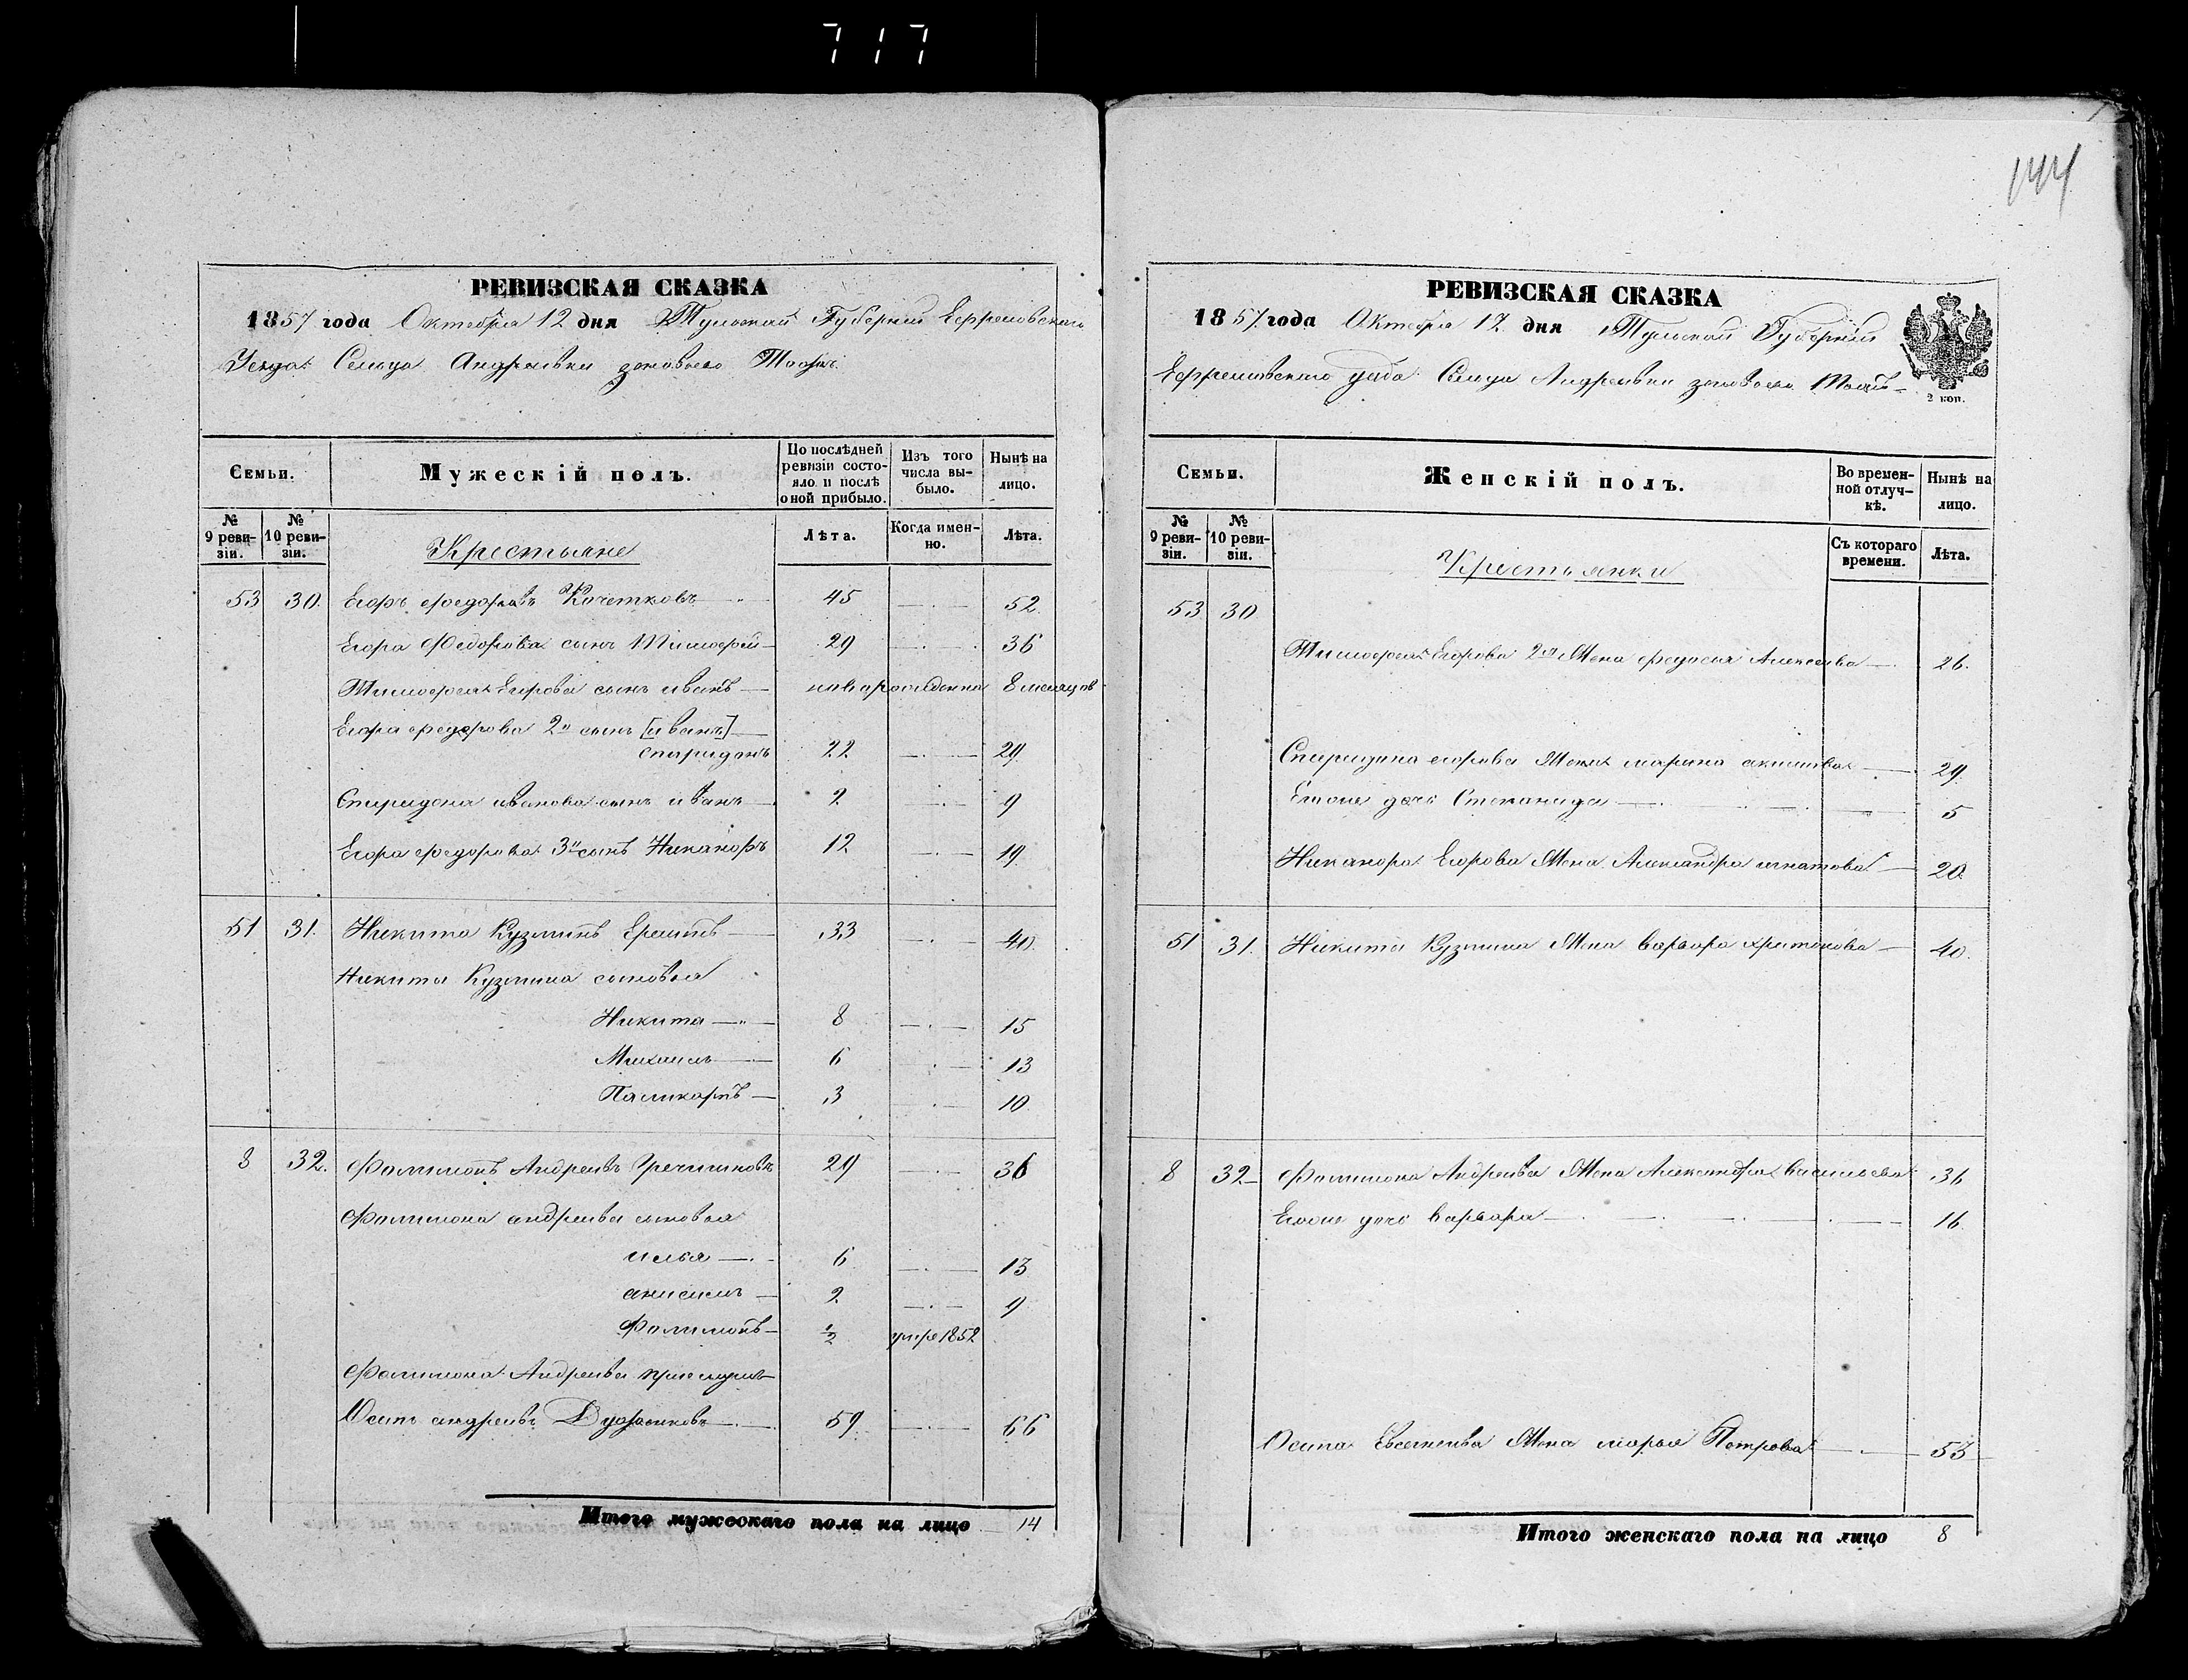 717
РЕВИЗСКАЯ СКАЗКА
1857 года Октября 12 дня Тульской Губернии Ефремовского
Уезда Сельца Андреевки
Семьи.
Мужескій полъ.
По послѣдней ревизіи состояло и послѣ оной прибыло.
Изъ того числа выбыло.
Нынѣ на лицо.
№ 9 ревизіи.
№ 10 ревизіи.
Крестьяне
Лѣта.
Когда именно.
Лѣта.
53 30. Егоръ федоровъ Кочетковъ 45 52.
Егора Федорова сынъ Тимофей 29 36
Тимофея Егорова сынъ иванъ новорожденна 8 месяцов
Егора федорова 2й сынъ [иванъ]
спиридонъ 22 29
Спиридона иванова сынъ иванъ 2 9
Егора федорова 3й сынъ Никаноръ 12 19
51 31. Никита Кузминъ 33 40.
Никиты Кузмина сыновья
Никита 8 15
Михаилъ 6 13
Паликарпъ 3 10
8 32. Фалимонъ Андреивъ Гречишниковъ 29 36
Фалимона андреива сыновья
илья 6 13
анисимъ 2 9
Фалимонъ 1/2 умре 1852
Фалимона Андреива
Осипъ андреивъ 59 66
Итого мужескаго пола на лицо 14
144
РЕВИЗСКАЯ СКАЗКА
1857 года Октября 12 дня Тульской Губернии
Ефремовского уезда Сельца Андреевки
2 коп.
Семьи.
Женскій полъ.
Во временной отлучкѣ.
Нынѣ на лицо.
№ 9 ревизіи.
№ 10 ревизіи.
Крестьянки
Съ котораго времени.
Лѣта.
53 30
Тимофея Егорова 2я Жена федосья Алексеива 26.
Спиридона егорова Жена марина акимова 29.
Егоже дочь Степанида 5
Никанора Егорова Жена Александра игнатова 20.
51 31. Никиты Кузмина Жена варвара харитонова 40.
8 32 Фалимона Андреива Жена Александра Васильева 36
Егоже дочь варвара 16.
Осипа Евсигнеива Жена марья Петрова 53
Итого женскаго пола на лицо 8